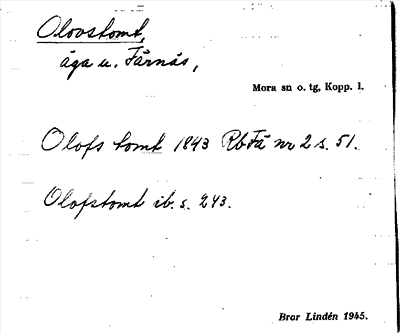 Olovstomt,
äga u. Färnäs,
Mora sn o. tg, Kopp. l.
Olofs tomt 1843 RbFä nr 2 s. 51.
Olofstomt ib. s. 243.
Bror Lindén 1945.